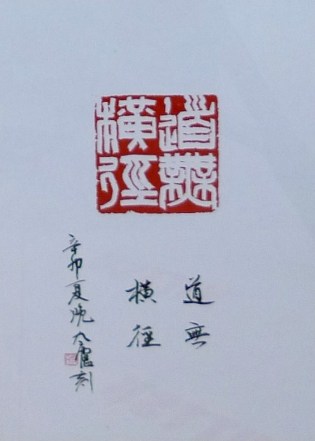 道無
橫徑
道無
橫徑
辛卯夏晚九廬刻